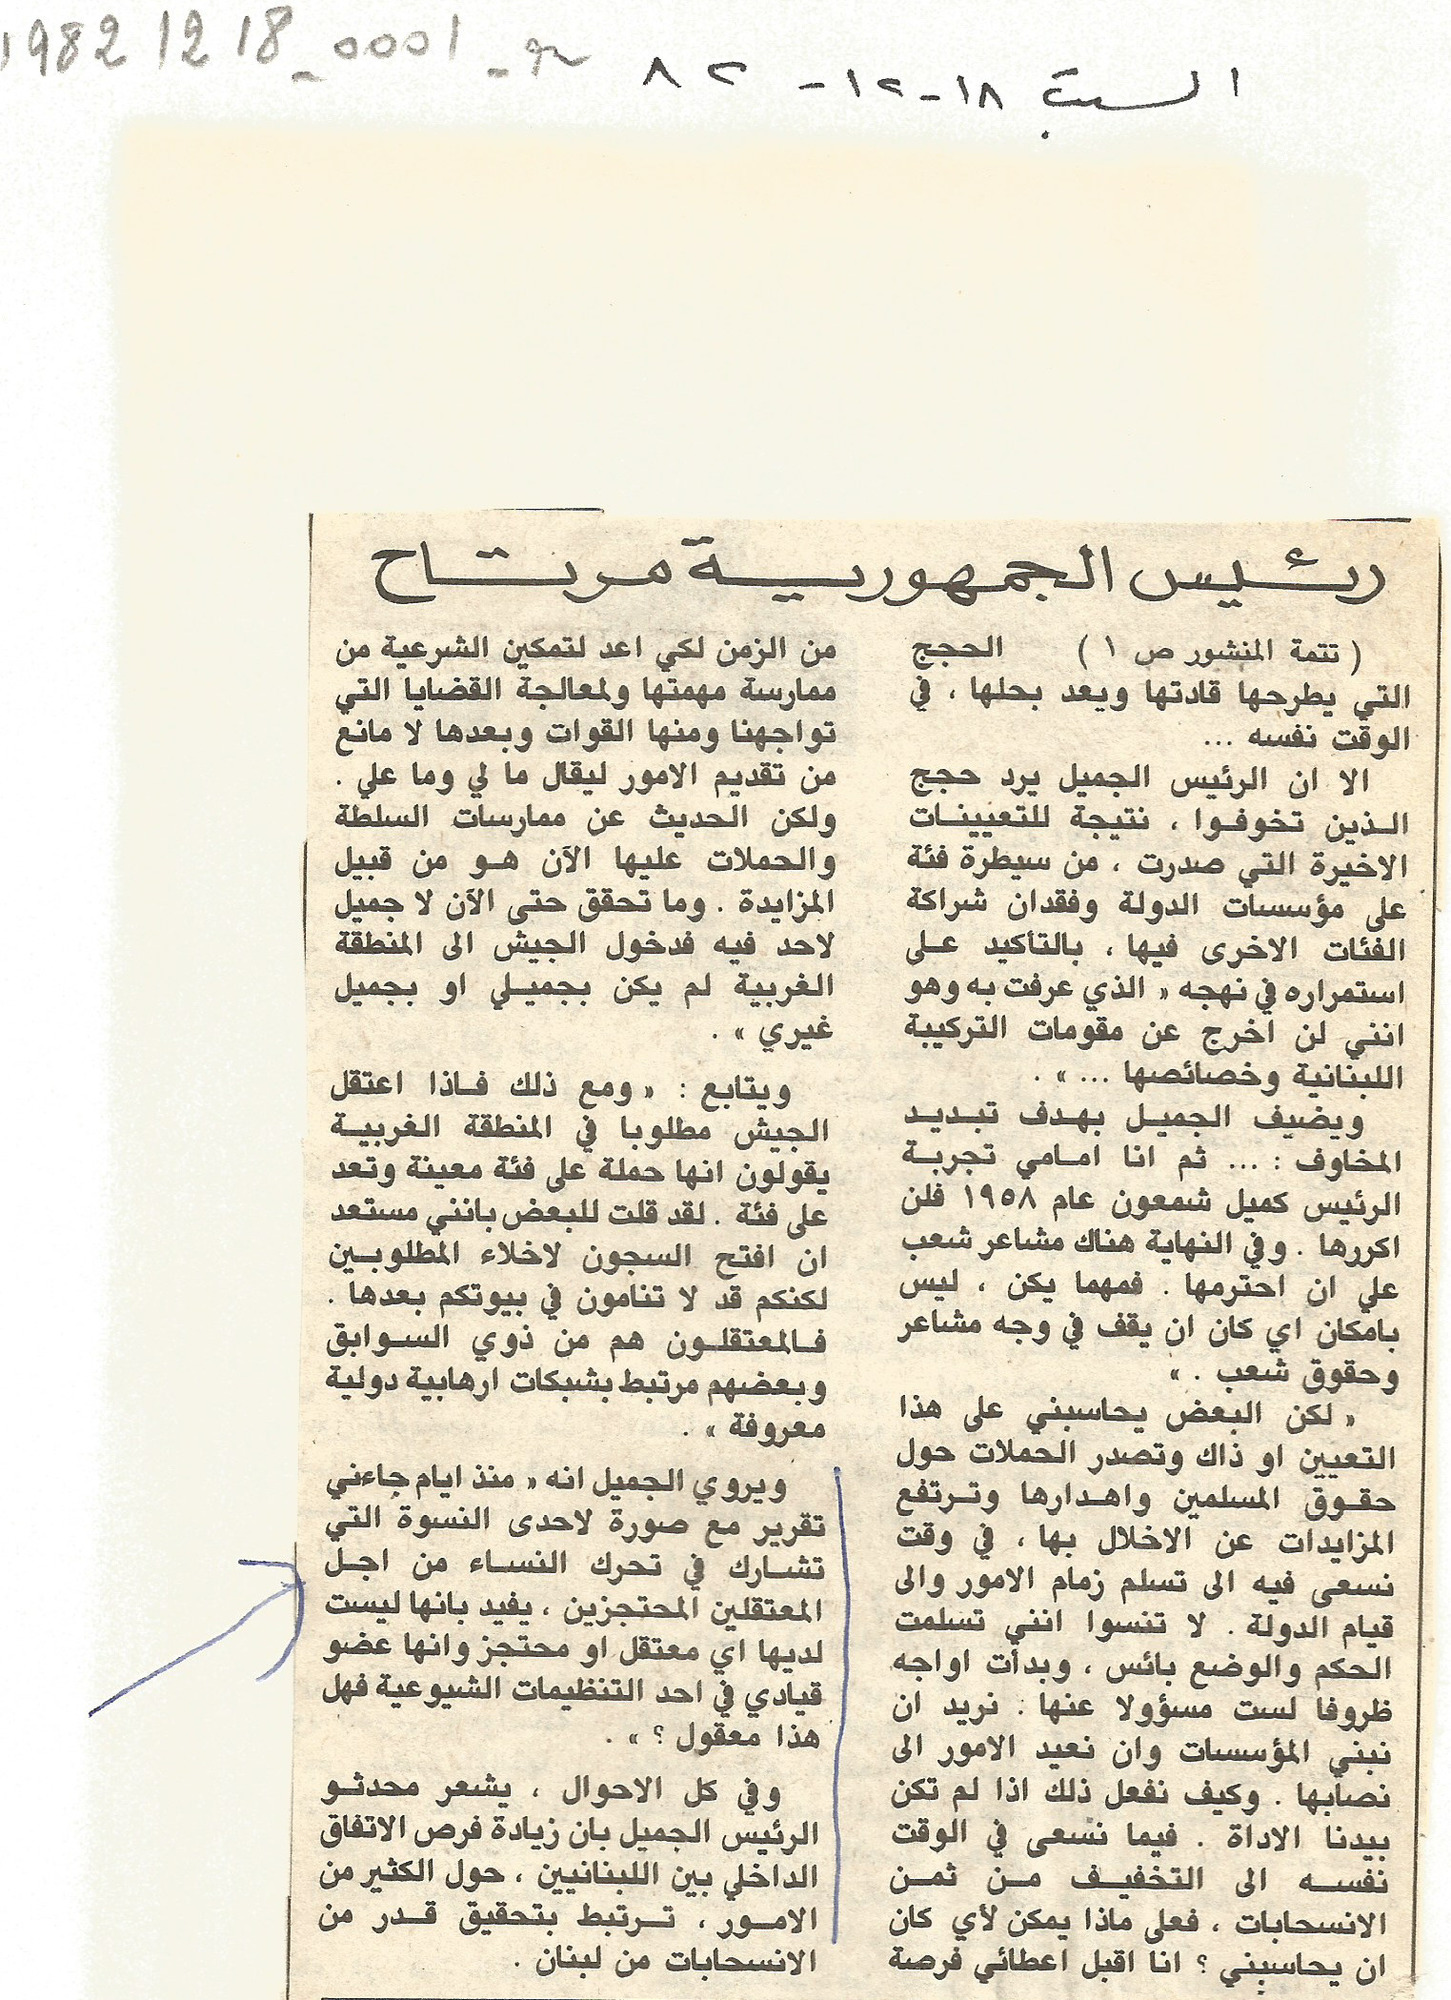 19821218_0001_
السبت ١٨-١٢-٨٢
رئيس الجمهورية مرتاح
( تتمة المنشور ص ١ ) الحجج
التي يطرحها قادتها ويعد بحلها ، في
الوقت نفسه ...
الا ان الرئيس الجميل يرد حجج
الذين تخوفوا ، نتيجة للتعيينات
الاخيرة التي صدرت ، من سيطرة فئة
على مؤسسات الدولة وفقدان شراكة
الفئات الاخرى فيها ، بالتأكيد على
استمراره في نهجه « الذي عرفت به وهو
انني لن اخرج عن مقومات التركيبة
اللبنانية وخصائصها ... » .
ويضيف الجميل بهدف تبديد
المخاوف : ... ثم انا امامي تجربة
الرئيس كميل شمعون عام ١٩٥٨ فلن
اكررها . وفي النهاية هناك مشاعر شعب
علي ان احترمها . فمهما يكن ، ليس
بامكان اي كان ان يقف في وجه مشاعر
وحقوق شعب . »
« لكن البعض يحاسبني على هذا
التعيين او ذاك وتصدر الحملات حول
حقوق المسلمين واهدارها وترتفع
المزايدات عن الاخلال بها ، في وقت
نسعى فيه الى تسلم زمام الامور والى
قيام الدولة . لا تنسوا انني تسلمت
الحكم والوضع بائس ، وبدأت اواجه
ظروفا لست مسؤولا عنها . نريد ان
نبني المؤسسات وان نعيد الامور الى
نصابها . وكيف نفعل ذلك اذا لم تكن
بيدنا الاداة . فيما نسعى في الوقت
نفسه الى التخفيف من ثمن
الانسحابات ، فعلى ماذا يمكن لأي كان
ان يحاسبني ؟ انا اقبل اعطائي فرصة
من الزمن لكي اعد لتمكين الشرعية من
ممارسة مهمتها ولمعالجة القضايا التي
تواجهنا ومنها القوات وبعدها لا مانع
من تقديم الامور ليقال ما لي وما علي .
ولكن الحديث عن ممارسات السلطة
والحملات عليها الآن هو من قبيل
المزايدة . وما تحقق حتى الآن لا جميل
لاحد فيه فدخول الجيش الى المنطقة
الغربية لم يكن بجميلي او بجميل
غيري » .
ويتابع : « ومع ذلك فاذا اعتقل
الجيش مطلوبا في المنطقة الغربية
يقولون انها حملة على فئة معينة وتعد
على فئة . لقد قلت للبعض بانني مستعد
ان افتح السجون لاخلاء المطلوبين
لكنكم قد لا تنامون في بيوتكم بعدها .
فالمعتقلون هم من ذوي السوابق
وبعضهم مرتبط بشبكات ارهابية دولية
معروفة » .
ويروي الجميل انه « منذ ايام جاءني
تقرير مع صورة لاحدى النسوة التي
تشارك في تحرك النساء من اجل
المعتقلين المحتجزين ، يفيد بانها ليست
لديها اي معتقل او محتجز وانها عضو
قيادي في احد التنظيمات الشيوعية فهل
هذا معقول ؟ » .
وفي كل الاحوال ، يشعر محدثو
الرئيس الجميل بان زيادة فرص الاتفاق
الداخلي بين اللبنانيين ، حول الكثير من
الامور ، ترتبط بتحقيق قدر من
الانسحابات من لبنان .